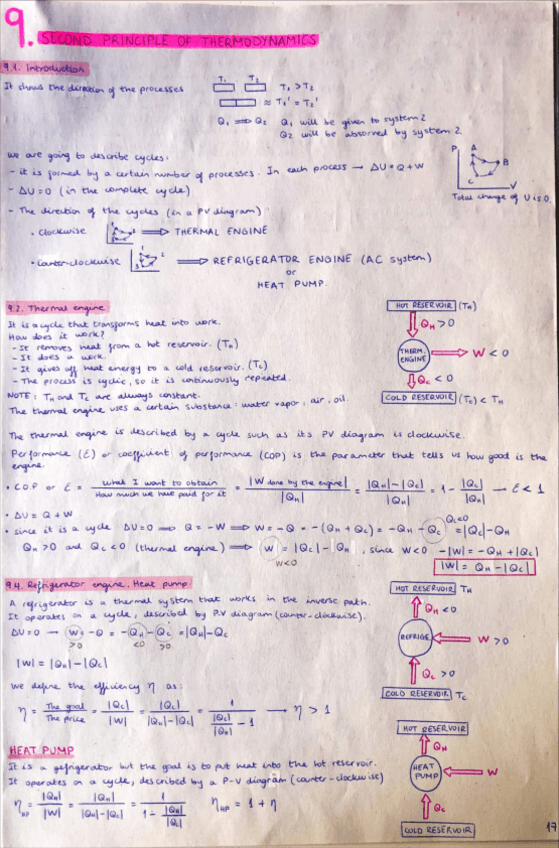 9. SECOND PRINCIPLE OF THERMODYNAMICS
9.1. Introduction
It shows the direction of the processes
T₁ T₂ T₁ > T₂
≈ T₁' = T₂'
Q₁ ⟹ Q₂ Q₁ will be given to system 2
Q₂ will be absorved by system 2.
We are going to describe cycles:
- it is formed by a certain number of processes. In each process → ΔU = Q + W
- ΔU = 0 (in the complete cycle)
- The direction of the cycles (in a PV diagram)
P A B C V
Total change of U is 0.
• Clockwise ⟹ THERMAL ENGINE
• Counter-clockwise ⟹ REFRIGERATOR ENGINE (AC system)
or
HEAT PUMP.
9.2. Thermal engine
It is a cycle that transforms heat into work.
How does it work?
- It removes heat from a hot reservoir. (T_H)
- It does a work.
- It gives off heat energy to a cold reservoir. (T_C)
- The process is cyclic, so it is continuously repeated.
NOTE: T_H and T_C are always constant.
The thermal engine uses a certain substance: water vapor, air, oil.
HOT RESERVOIR (T_H)
Q_H > 0
THERM. ENGINE
W < 0
Q_C < 0
COLD RESERVOIR (T_C) < T_H
The thermal engine is described by a cycle such as its PV diagram is clockwise.
Performance (ε) or coefficient of performance (COP) is the parameter that tells us how good is the
engine.
• C.O.P or ε = What I want to obtain / How much we have paid for it = |W done by the engine| / |Q_H| = |Q_H| - |Q_C| / |Q_H| = 1 - |Q_C| / |Q_H| → ε < 1
• ΔU = Q + W
• since it is a cycle ΔU = 0 ⟹ Q = -W ⟹ W = -Q = -(Q_H + Q_C) = -Q_H - Q_C = |Q_C| - Q_H
Q_C < 0
Q_H > 0 and Q_C < 0 (thermal engine) ⟹ W = |Q_C| - Q_H , since W < 0 -|W| = -Q_H + |Q_C|
W < 0
|W| = Q_H - |Q_C|
9.4. Refrigerator engine. Heat pump
A refrigerator is a thermal system that works in the inverse path.
It operates on a cycle, described by P.V diagram (counter-clockwise).
ΔU = 0 → W = -Q = -Q_H - Q_C = |Q_H| - Q_C
>0 <0 >0
|W| = |Q_H| - |Q_C|
We define the efficiency η as:
η = The goal / The price = |Q_C| / |W| = |Q_C| / |Q_H| - |Q_C| = 1 / |Q_C| / |Q_H| - 1 → η > 1
HOT RESERVOIR T_H
Q_H < 0
REFRIGE.
W > 0
Q_C > 0
COLD RESERVOIR T_C
HEAT PUMP
It is a gefrigerator but the goal is to put heat into the hot reservoir.
It operates on a cycle, described by a P-V diagram (counter-clockwise)
η_HP = |Q_H| / |W| = |Q_H| / |Q_H| - |Q_C| = 1 / 1 - |Q_H| / |Q_C| η_HP = 1 + η
HOT RESERVOIR
Q_H
HEAT PUMP
W
Q_C
COLD RESERVOIR
17